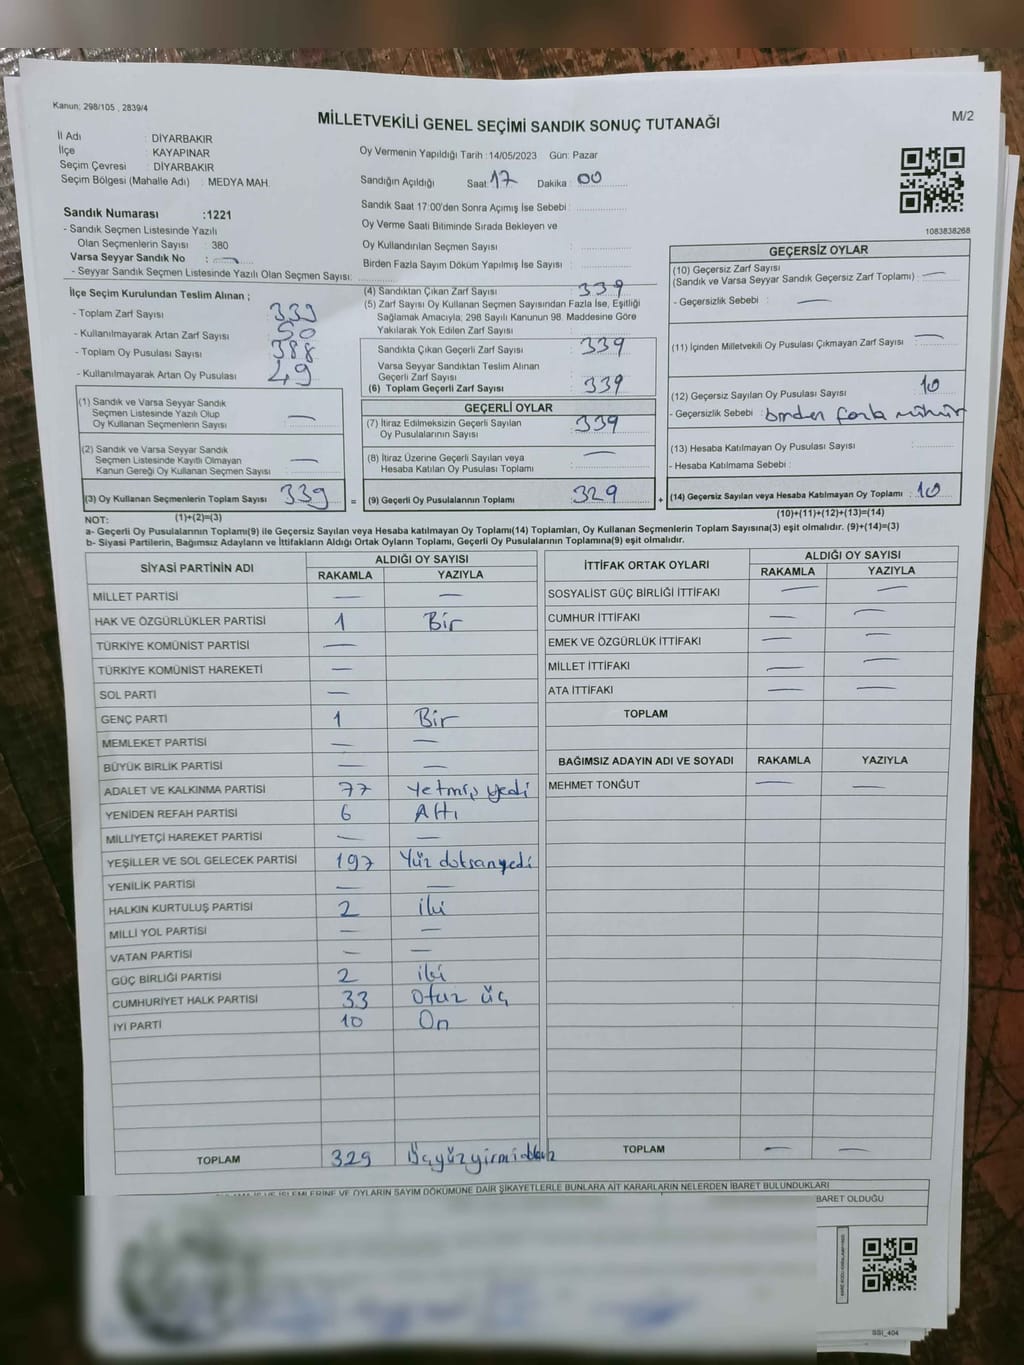 Kanun; 298/105 , 2839/4
M/2
MİLLETVEKİLİ GENEL SEÇİMİ SANDIK SONUÇ TUTANAĞI
İl Adı : DİYARBAKIR
İlçe : KAYAPINAR
Seçim Çevresi : DİYARBAKIR
Seçim Bölgesi (Mahalle Adı) : MEDYA MAH.
Oy Vermenin Yapıldığı Tarih :14/05/2023 Gün: Pazar
Sandığın Açıldığı Saat: 17 Dakika : 00
Sandık Saat 17:00'den Sonra Açımış İse Sebebi :
Oy Verme Saati Bitiminde Sırada Bekleyen ve
Oy Kullandırılan Seçmen Sayısı :
Birden Fazla Sayım Döküm Yapılmış İse Sayısı :
1083838268
Sandık Numarası :1221
- Sandık Seçmen Listesinde Yazılı
Olan Seçmenlerin Sayısı : 380
Varsa Seyyar Sandık No : —
- Seyyar Sandık Seçmen Listesinde Yazılı Olan Seçmen Sayısı:
İlçe Seçim Kurulundan Teslim Alınan ;
- Toplam Zarf Sayısı 339
- Kullanılmayarak Artan Zarf Sayısı : 50
- Toplam Oy Pusulası Sayısı : 388
- Kullanılmayarak Artan Oy Pusulası 49
(1) Sandık ve Varsa Seyyar Sandık
Seçmen Listesinde Yazılı Olup
Oy Kullanan Seçmenlerin Sayısı : —
(2) Sandık ve Varsa Seyyar Sandık
Seçmen Listesinde Kayıtlı Olmayan
Kanun Gereği Oy Kullanan Seçmen Sayısı : —
(3) Oy Kullanan Seçmenlerin Toplam Sayısı : 339
(1)+(2)=(3)
(4) Sandıktan Çıkan Zarf Sayısı : 339
(5) Zarf Sayısı Oy Kullanan Seçmen Sayısından Fazla İse, Eşitliği
Sağlamak Amacıyla; 298 Sayılı Kanunun 98. Maddesine Göre
Yakılarak Yok Edilen Zarf Sayısı :
Sandıkta Çıkan Geçerli Zarf Sayısı : 339
Varsa Seyyar Sandıktan Teslim Alınan
Geçerli Zarf Sayısı :
(6) Toplam Geçerli Zarf Sayısı : 339
GEÇERLİ OYLAR
(7) İtiraz Edilmeksizin Geçerli Sayılan
Oy Pusulalarının Sayısı : 339
(8) İtiraz Üzerine Geçerli Sayılan veya
Hesaba Katılan Oy Pusulası Toplamı : —
= (9) Geçerli Oy Pusulalarının Toplamı : 329 +
GEÇERSİZ OYLAR
(10) Geçersiz Zarf Sayısı
(Sandık ve Varsa Seyyar Sandık Geçersiz Zarf Toplamı) : —
- Geçersizlik Sebebi : —
(11) İçinden Milletvekili Oy Pusulası Çıkmayan Zarf Sayısı : —
(12) Geçersiz Sayılan Oy Pusulası Sayısı : 10
- Geçersizlik Sebebi : birden fazla mühür
(13) Hesaba Katılmayan Oy Pusulası Sayısı :
- Hesaba Katılmama Sebebi :
(14) Geçersiz Sayılan veya Hesaba Katılmayan Oy Toplamı : 10
(10)+(11)+(12)+(13)=(14)
NOT:
a- Geçerli Oy Pusulalarının Toplamı(9) ile Geçersiz Sayılan veya Hesaba katılmayan Oy Toplamı(14) Toplamları, Oy Kullanan Seçmenlerin Toplam Sayısına(3) eşit olmalıdır. (9)+(14)=(3)
b- Siyasi Partilerin, Bağımsız Adayların ve İttifakların Aldığı Ortak Oyların Toplamı, Geçerli Oy Pusulalarının Toplamına(9) eşit olmalıdır.
SİYASİ PARTİNİN ADI ALDIĞI OY SAYISI
RAKAMLA YAZIYLA
MİLLET PARTİSİ — —
HAK VE ÖZGÜRLÜKLER PARTİSİ 1 Bir
TÜRKİYE KOMÜNİST PARTİSİ —
TÜRKİYE KOMÜNİST HAREKETİ —
SOL PARTİ —
GENÇ PARTİ 1 Bir
MEMLEKET PARTİSİ — —
BÜYÜK BİRLİK PARTİSİ — —
ADALET VE KALKINMA PARTİSİ 77 Yetmiş yedi
YENİDEN REFAH PARTİSİ 6 Altı
MİLLİYETÇİ HAREKET PARTİSİ — —
YEŞİLLER VE SOL GELECEK PARTİSİ 197 Yüz doksanyedi
YENİLİK PARTİSİ — —
HALKIN KURTULUŞ PARTİSİ 2 iki
MİLLİ YOL PARTİSİ — —
VATAN PARTİSİ — —
GÜÇ BİRLİĞİ PARTİSİ 2 iki
CUMHURİYET HALK PARTİSİ 33 Otuz üç
İYİ PARTİ 10 On
TOPLAM 329 Üçyüzyirmidokuz
İTTİFAK ORTAK OYLARI ALDIĞI OY SAYISI
RAKAMLA YAZIYLA
SOSYALİST GÜÇ BİRLİĞİ İTTİFAKI — —
CUMHUR İTTİFAKI — —
EMEK VE ÖZGÜRLÜK İTTİFAKI — —
MİLLET İTTİFAKI — —
ATA İTTİFAKI — —
TOPLAM
BAĞIMSIZ ADAYIN ADI VE SOYADI RAKAMLA YAZIYLA
MEHMET TONĞUT — —
TOPLAM — —
İŞLEMLERİNE VE OYLARIN SAYIM DÖKÜMÜNE DAİR ŞİKAYETLERLE BUNLARA AİT KARARLARIN NELERDEN İBARET BULUNDUKLARI
BARET OLDUĞU
SSI_404